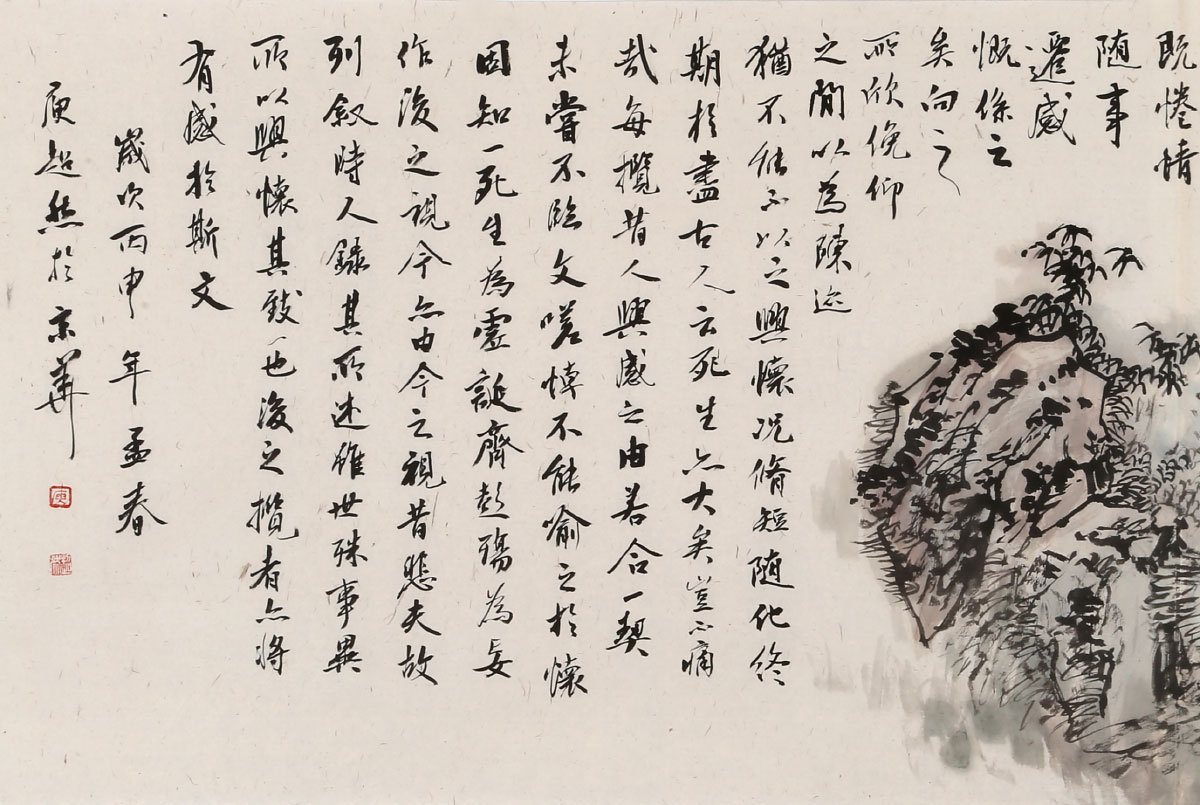 既惓情
随事
遷感
慨係之
矣向之
所欣俛仰
之閒以為陳迹
猶不能不以之興懷况脩短随化終
期於盡古人云死生亦大矣豈不痛
哉每攬昔人興感之由若合一契
未嘗不臨文嗟悼不能喻之於懷
固知一死生為虛誕齊彭殤為妄
作後之視今亦由今之視昔悲夫故
列敘時人錄其所述雖世殊事異
所以興懷其致一也後之攬者亦將
有感於斯文
歲次丙申年孟春
庾超然於京華